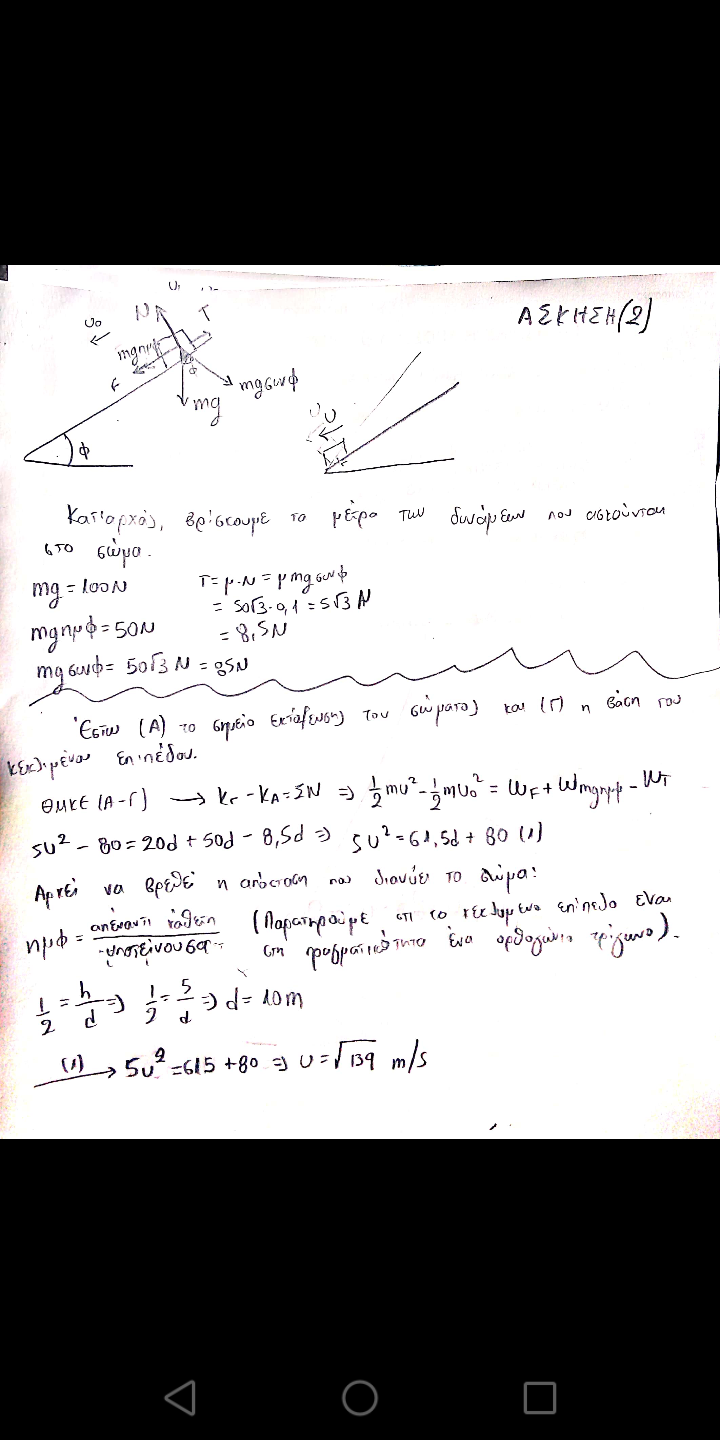 ΑΣΚΗΣΗ(2)
υ₀
N
T
mgημφ
F
φ
mgσυνφ
mg
φ
υ
Καταρχάς, βρίσκουμε το μέτρο των δυνάμεων που ασκούνται
στο σώμα.
mg = 100N
T = μ·N = μmgσυνφ
= 50√3·0,1 = 5√3 N
mgημφ = 50N
= 8,5N
mgσυνφ = 50√3 N = 85N
Έστω (Α) το σημείο εκτόξευσης του σώματος και (Γ) η βάση του
κεκλιμένου επιπέδου.
ΘΜΚΕ (Α-Γ) → KΓ - KΑ = ΣW ⇒ 1/2 mυ² - 1/2 mυ₀² = WF + Wmgημφ - WT
5υ² - 80 = 20d + 50d - 8,5d ⇒ 5υ² = 61,5d + 80 (1)
Αρκεί να βρεθεί η απόσταση που διανύει το σώμα:
ημφ = απέναντι κάθετη / υποτείνουσα (Παρατηρούμε οτι το κεκλιμενο επίπεδο είναι
στη πραγματικότητα ένα ορθογώνιο τρίγωνο).
1/2 = h/d ⇒ 1/2 = 5/d ⇒ d = 10m
(1) → 5υ² = 615 + 80 ⇒ υ = √139 m/s